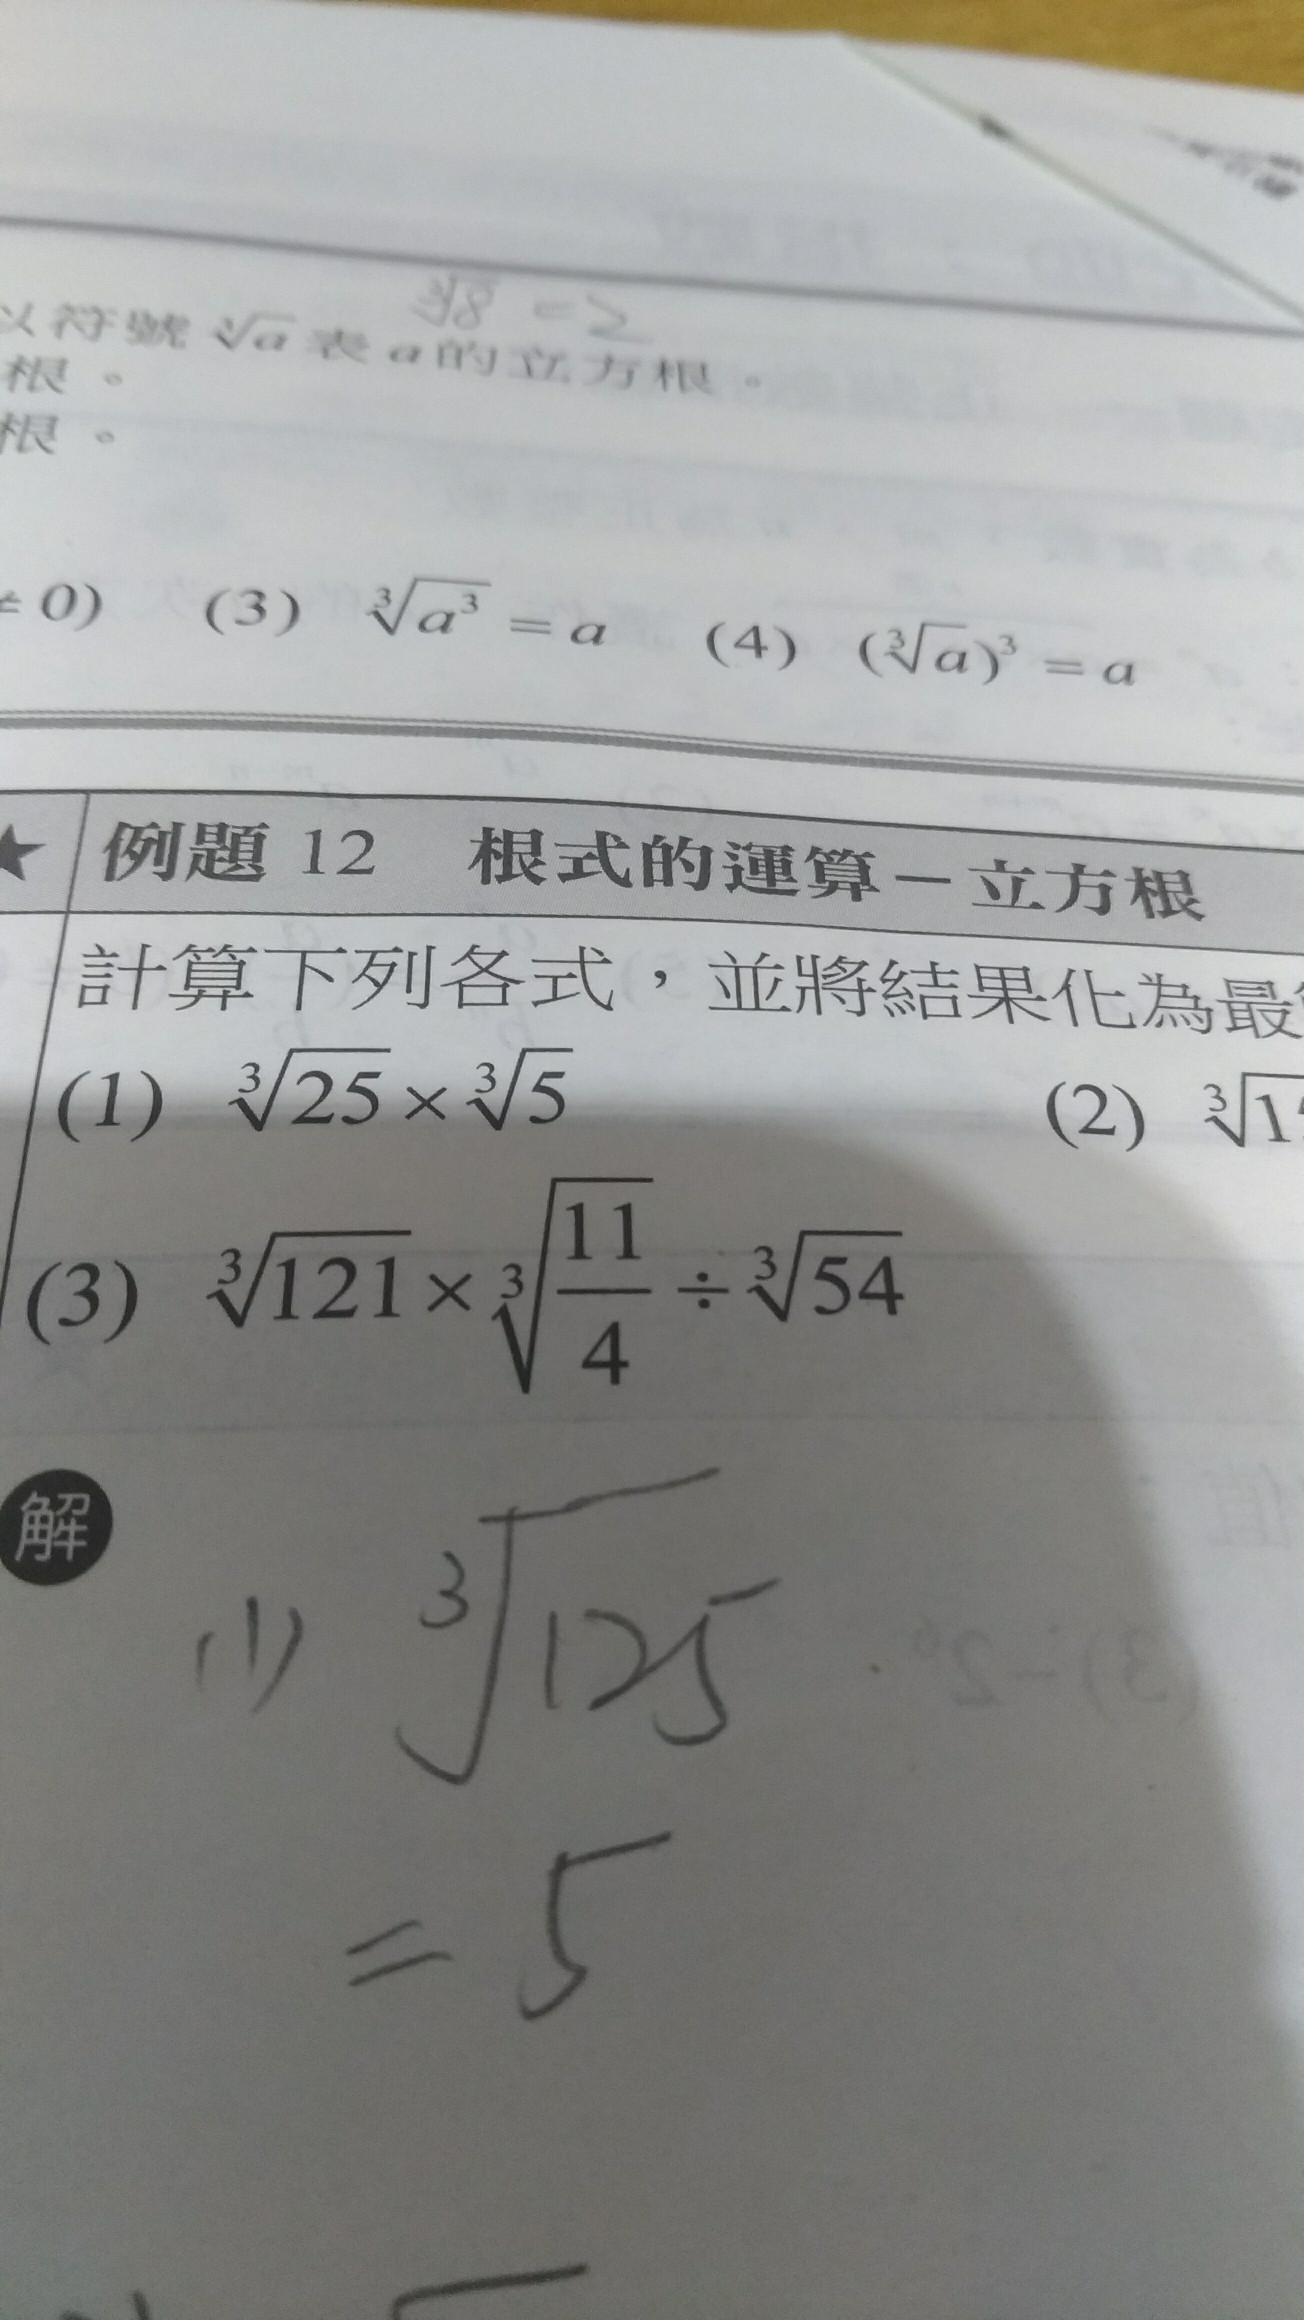 ∛8 = 2
以符號 ∛a 表 a 的立方根。
根。
根。
≠ 0) (3) ∛a³ = a (4) (∛a)³ = a
★ 例題 12 根式的運算－立方根
計算下列各式，並將結果化為最
(1) ∛25 × ∛5 (2) ∛1
(3) ∛121 × ∛(11/4) ÷ ∛54
解
(1) ∛125
= 5